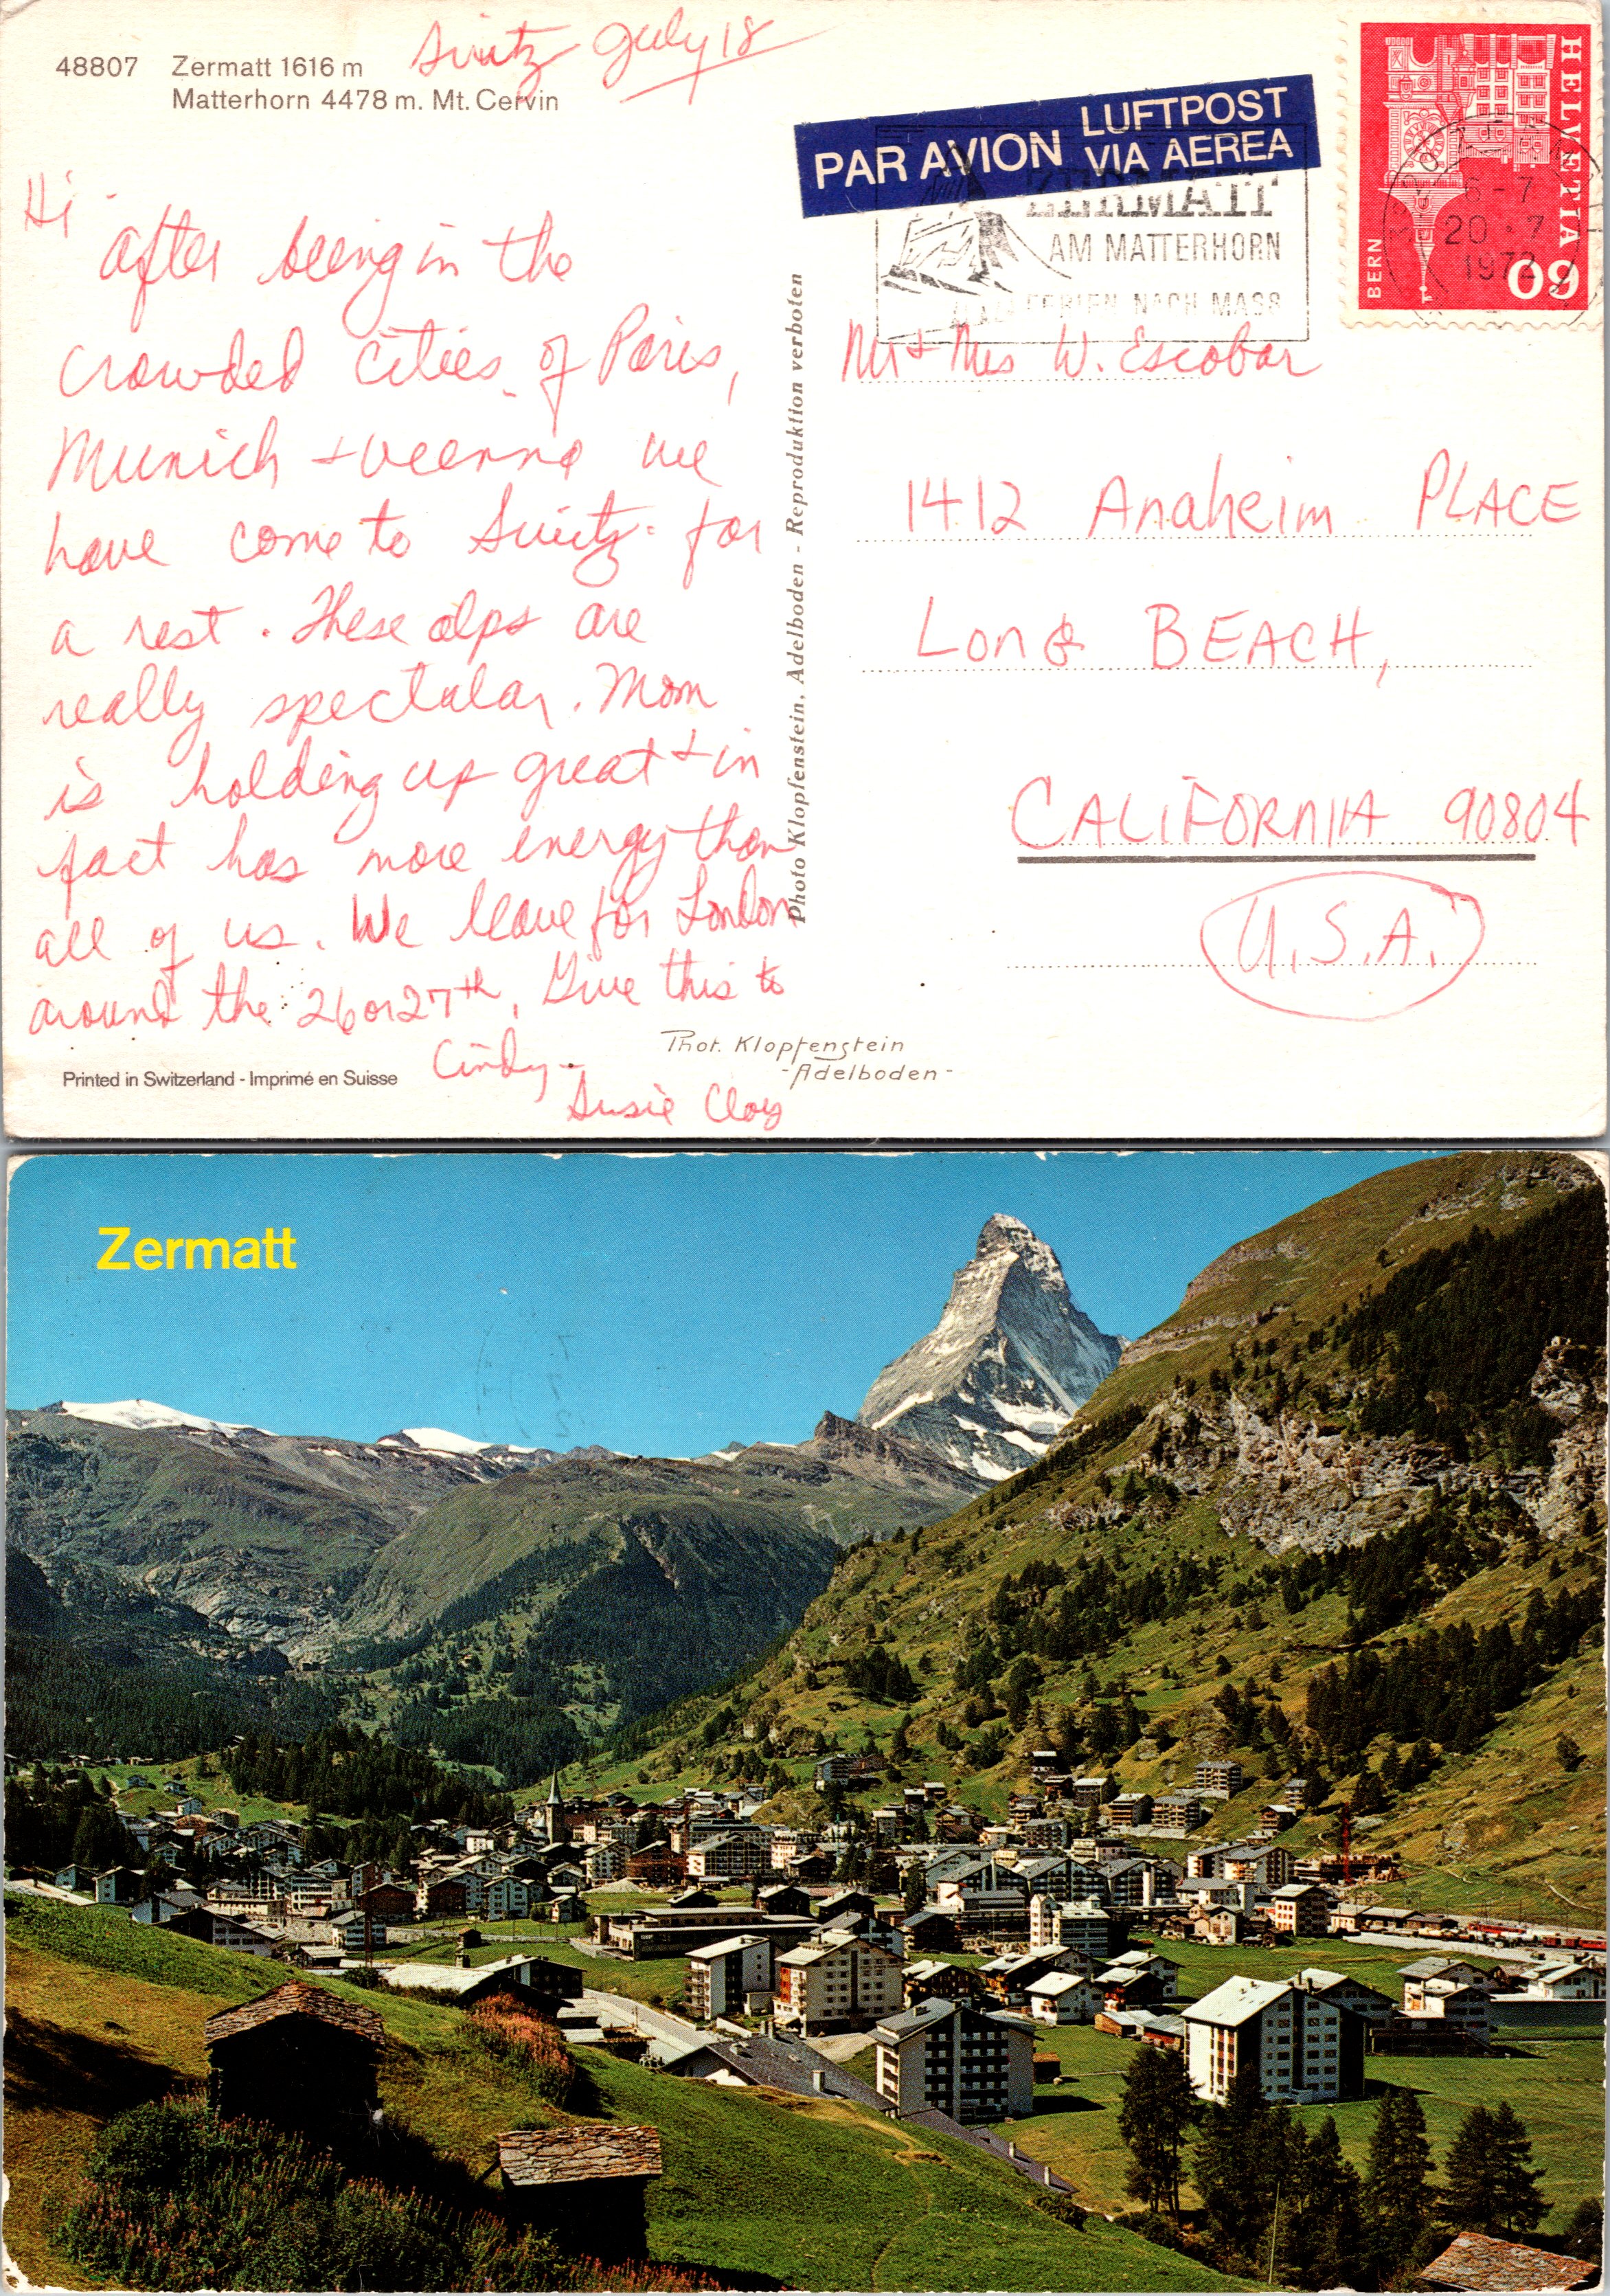 48807 Zermatt 1616 m
Matterhorn 4478 m. Mt. Cervin
Switz July 18
Hi
After being in the
crowded cities of Paris,
Munich + veenna we
have come to Switz. for
a rest. These alps are
really spectular. Mom
is holding up great + in
fact has more energy than
all of us. We leave for London
around the 26 or 27th. Give this to
Cindy.
Susie Cloy
Printed in Switzerland - Imprimé en Suisse
Phot. Klopfenstein
-Adelboden-
Photo Klopfenstein, Adelboden - Reproduktion verboten
PAR AVION LUFTPOST
VIA AEREA
ZERMATT
AM MATTERHORN
FERIEN NACH MASS
HELVETIA
BERN
60
6-7
20.7
1972
Mr + Mrs W. Escobar
1412 Anaheim PLACE
Long BEACH,
CALIFORNIA 90804
U.S.A.
Zermatt